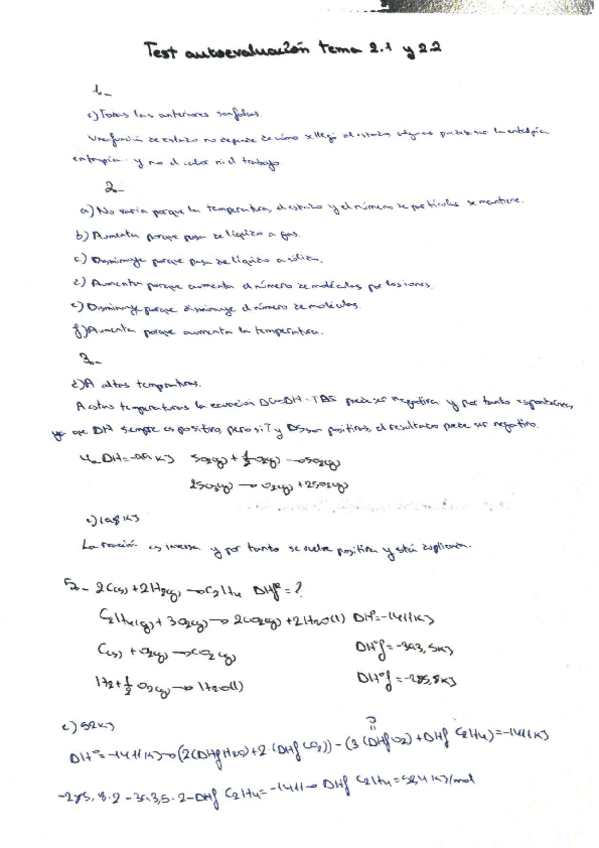 Test autoevaluación tema 2.1 y 2.2
1.-
c) Todas las anteriores son falsas.
Una función de estado no depende de cómo se llegó al estado, puede ser la entalpía
entropía y no el calor ni el trabajo
2.-
a) No varía porque la temperatura, el estado y el número de partículas se mantiene.
b) Aumenta porque pasa de líquido a gas.
c) Disminuye porque pasa de líquido a sólido.
d) Aumenta porque aumenta el número de moléculas por los iones.
e) Disminuye porque disminuye el número de moléculas.
f) Aumenta porque aumenta la temperatura.
3.-
d) A altas temperaturas.
A estas temperaturas la ecuación DG=DH-TDS puede ser negativa y por tanto espontánea,
ya que DH siempre es positivo, pero si T y DS son positivas, el resultado puede ser negativo.
4.- DH=-99 KJ SO2(g) + 1/2 O2(g) → SO3(g)
2SO3(g) → O2(g) + 2SO2(g)
c) 198 KJ
La reacción es inversa y por tanto se vuelve positiva y está duplicada.
5.- 2C(s) + 2H2(g) → C2H4 DHfº = ?
C2H4(g) + 3O2(g) → 2CO2(g) + 2H2O(l) DHº=-1411KJ
C(s) + O2(g) → CO2(g) DHºf=-393,5KJ
H2 + 1/2 O2(g) → H2O(l) DHºf=-285,8KJ
c) 52KJ
DHº=-1411KJ → (2(DHfH2O)+2·(DHf CO2)) - (3(DHfO2) + DHf C2H4)=-1411KJ
-285,8·2 - 393,5·2 - DHf C2H4=-1411 → DHf C2H4=52,4 KJ/mol